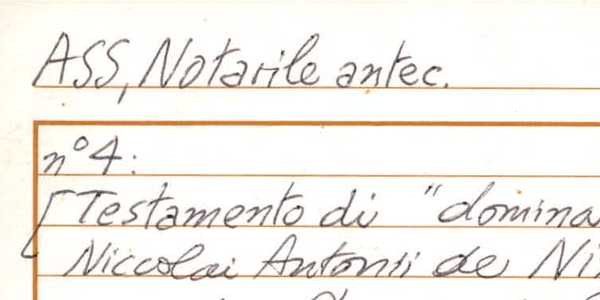 ASS, Notarile antec.
n° 4:
[Testamento di "domina
Niccolai Antonii de